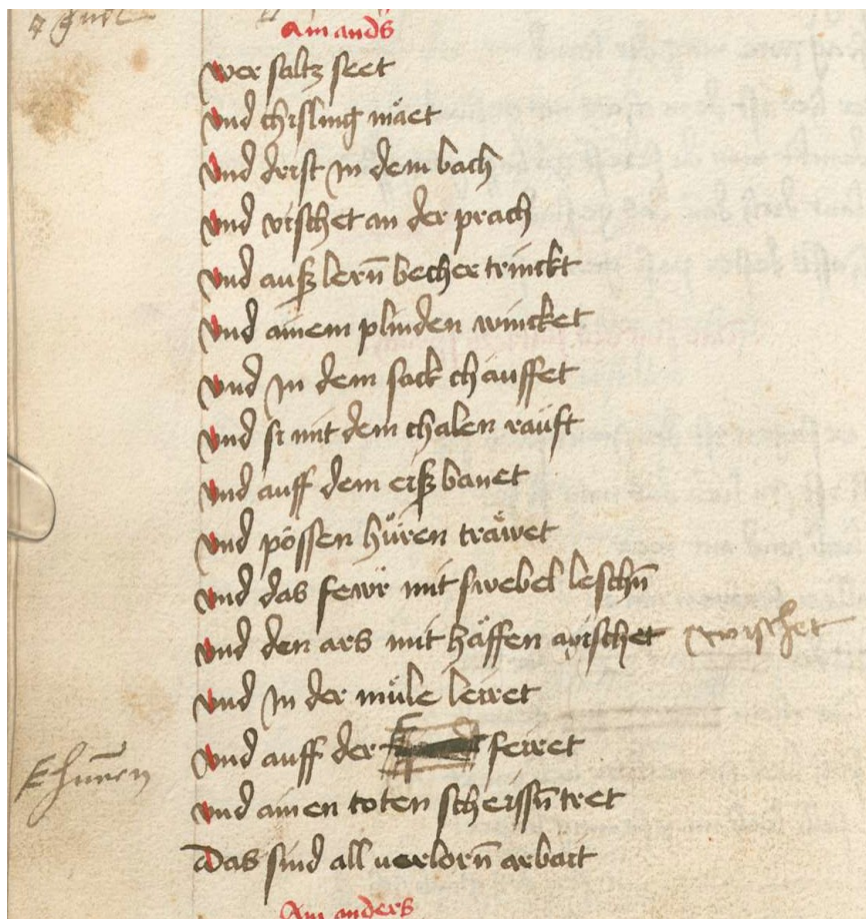 Ain anders
wer saltz seet
vnd chisling mäet
vnd drist In dem bach
vnd vischet an der prach
vnd auß lern̄ becher trinckt
vnd ainem plinden wincket
vnd In dem sack chauffet
vnd si mit dem chalen rauft
vnd auff dem erß bauet
vnd pössen hůren träwet
vnd das fewr mit swebel leschn̄
vnd den ars mit häffen wischet wischet
vnd In der müle lerret
vnd auff der feiret
vnd ainen toten scheissn̄ tret
Das sind all uerlorn̄ arbait
Ain anders